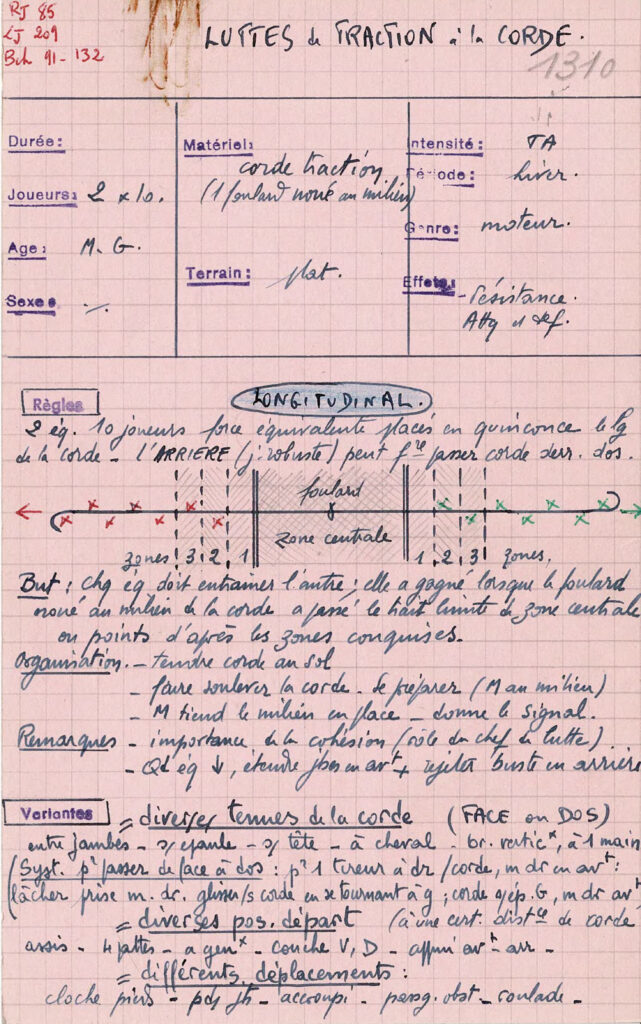 RJ 85
LJ 209
Bch 91-132
LUTTES de TRACTION à la CORDE.
1310
Durée:
Joueurs: 2 x 10.
Age: M. G.
Sexe
Matériel: corde traction.
(1 foulard noué au milieu)
Terrain: plat.
Intensité: TA
Période: hiver.
Genre: moteur.
Effets: - résistance.
Attq et déf.
Règles
LONGITUDINAL.
2 éq. 10 joueurs force équivalente placés en quinconce le lg
de la corde - L'ARRIERE (j. robuste) peut fre passer corde derr. dos.
foulard
zone centrale
zones 3 2 1
1 2 3 zones.
But: chq éq doit entraîner l'autre; elle a gagné lorsque le foulard
noué au milieu de la corde a passé le trait limite de zone centrale
ou points d'après les zones conquises.
Organisation. - tendre corde au sol
- faire soulever la corde. Se préparer (M au milieu)
- M tient le milieu en place - donne le signal.
Remarques - importance de la cohésion (rôle du chef de lutte)
- Qd éq ↓, étendre jbes en avt + rejeter buste en arrière
Variantes
= diverses tenues de la corde (FACE ou DOS)
entre jambes - s/ épaule - s/ tête - à cheval - br. vertic x, à 1 main
(Syst. pr passer de face à dos: pr 1 tireur à dr / corde, m dr en avt:
lâcher prise m. dr. glisser/s corde en se tournant à g; corde s/ép. G, m dr avt)
= diverses pos. départ (à une cert. distce de corde
assis - 4 pattes - a genx - couché V, D - appui avt - arr -
= différents déplacements:
cloche pieds - - accroupi - passg. obst - roulade -